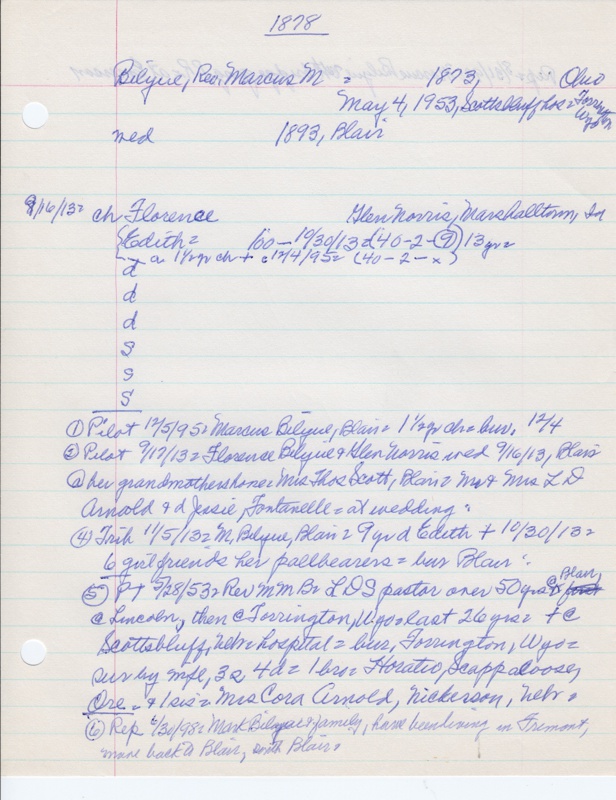 1878
Bilyue, Rev. Marcus M = 1873, Ohio
May 4, 1953, Scottsbluff, hos = Torrington Wyo
wed 1893, Blair
9/16/13 = ch Florence Glen Norris, Marshalltown, Ia
Edith = '00 – 10/30/13 = (40-2-9) 13 yrs =
a 1½ yr ch + c 12/4/95 = (40-2-x)
d
d
d
s
s
s
① Pilot 12/5/95 = Marcus Bilyue, Blair = 1½ yr ch = bur, 12/4
② Pilot 9/17/13 = Florence Bilyue & Glen Norris wed 9/16/13, Blair
@ her grandmothers home = Mrs Thos Scott, Blair = Mr & Mrs L D
Arnold & d Jessie, Fontanelle = at wedding =
④ Trib 11/5/13 = M. Bilyue, Blair = 9 yr d Edith + 10/30/13 =
6 girlfriends her pallbearers = bur Blair =
⑤ PT 5/28/53 = Rev M M B = LDS pastor over 50 yrs = @ Blair,
@ Lincoln, then @ Torrington, Wyo = last 26 yrs = + @
Scottsbluff, Nebr = hospital = bur, Torrington, Wyo =
sur by wife, 3s 4d = 1 bro = Horatio, Scappoose,
Ore = & 1 sis = Mrs Cora Arnold, Nickerson, Nebr =
⑥ Rep 6/30/98 = Mark Bilyue & family, have been living in Fremont,
move back to Blair, Blair =